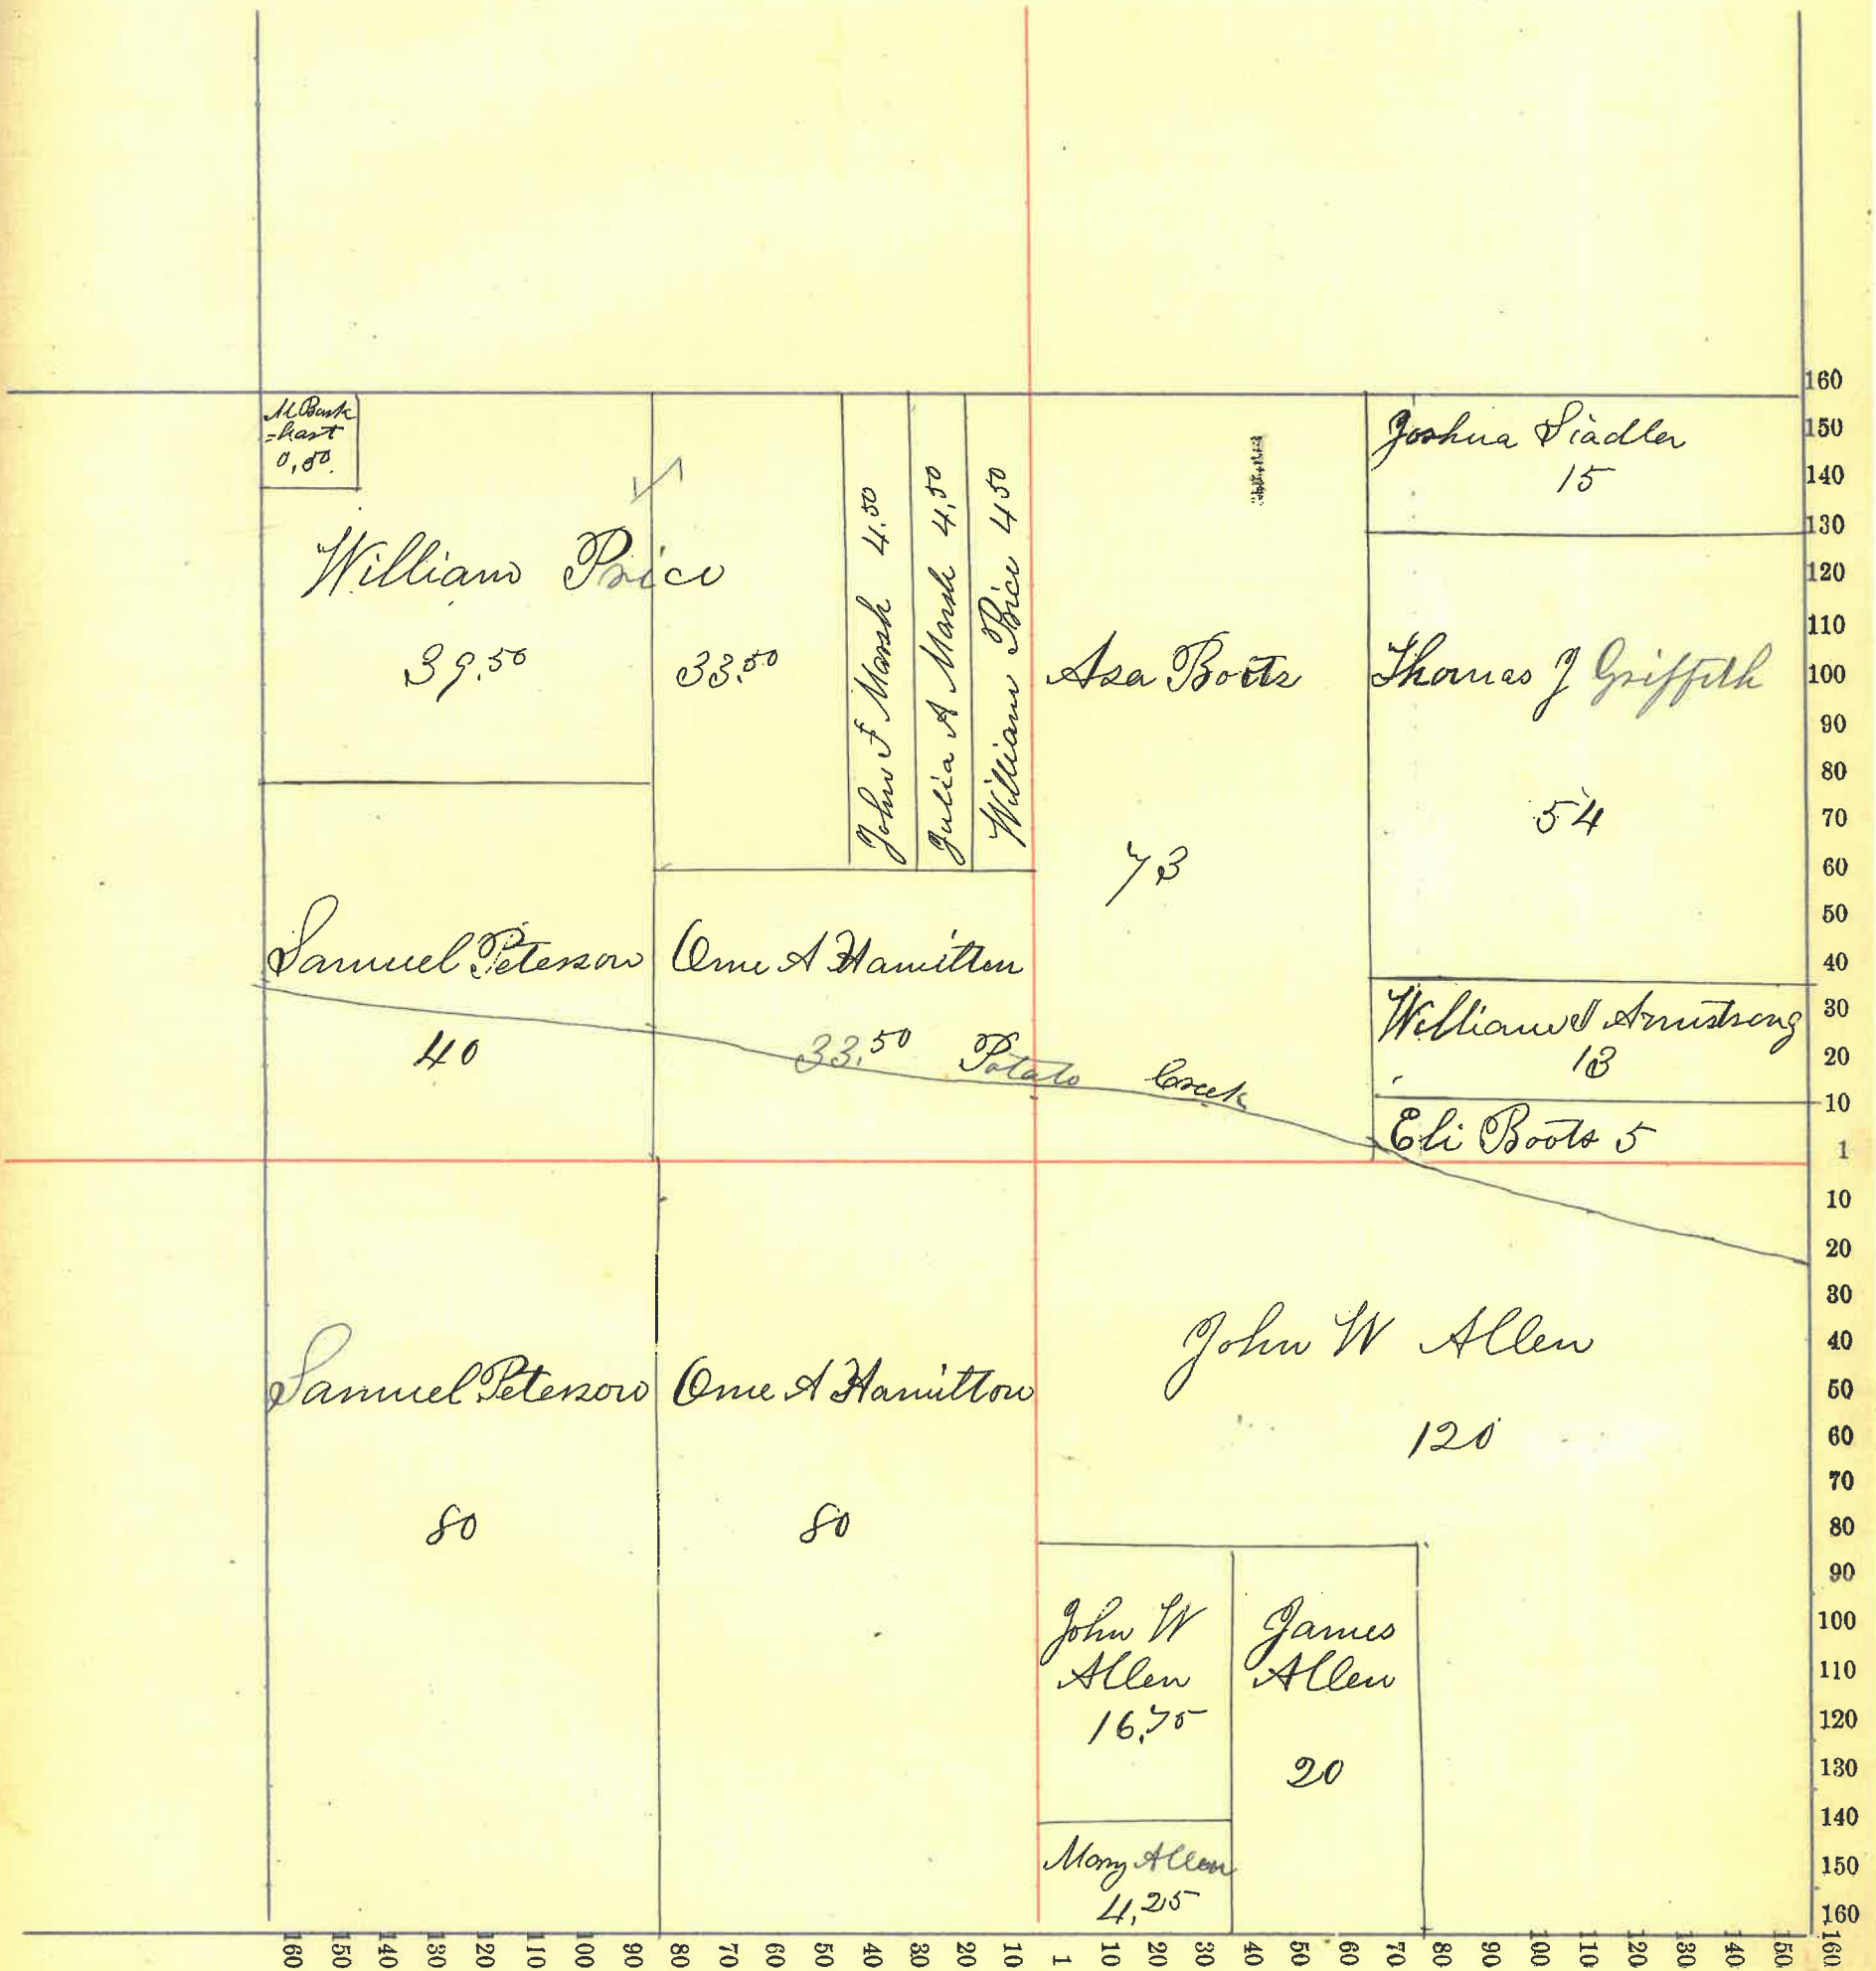 M Bark
=hart
0,50
William Price
39.50
33.50
John F Marsh 4.50
Julia A Marsh 4,50
William Price 4 50
Asa Boots
73
Joshua Siadler
15
Thomas J Griffith
54
Samuel Peterson
40
Ome A Hamilton
33.50
Potato Creek
William J Armstrong
13
Eli Boots 5
Samuel Peterson
80
Ome A Hamilton
80
John W Allen
120
John W
Allen
16,75
James
Allen
20
Mary Allen
4,25
160
150
140
130
120
110
100
90
80
70
60
50
40
30
20
10
1
10
20
30
40
50
60
70
80
90
100
110
120
130
140
150
160
160 150 140 130 120 110 100 90 80 70 60 50 40 30 20 10 1 10 20 30 40 50 60 70 80 90 100 110 120 130 140 150 160